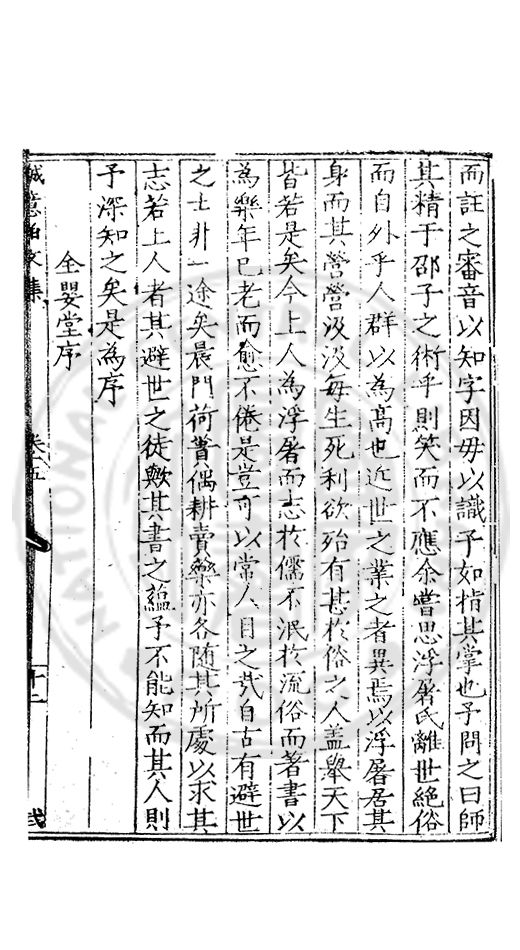 而註之審音以知字因母以識子如指其掌也予問之曰師
其精于邵子之術乎則笑而不應余嘗思浮屠氏離世絕俗
而自外乎人群以為高也近世之業之者異焉以浮屠居其
身而其營營汲汲每生死利欲殆有甚於俗之人盖舉天下
皆若是矣今上人為浮屠而志於儒不泯於流俗而著書以
為樂年已老而愈不倦是豈可以常人目之哉自古有避世
之士非一途矣晨門荷蕢偶耕賣藥亦各随其所處以求其
志若上人者其避世之徒歟其書之蘊予不能知而其人則
予深知之矣是為序
全嬰堂序
誠意伯文集
卷之五
十二